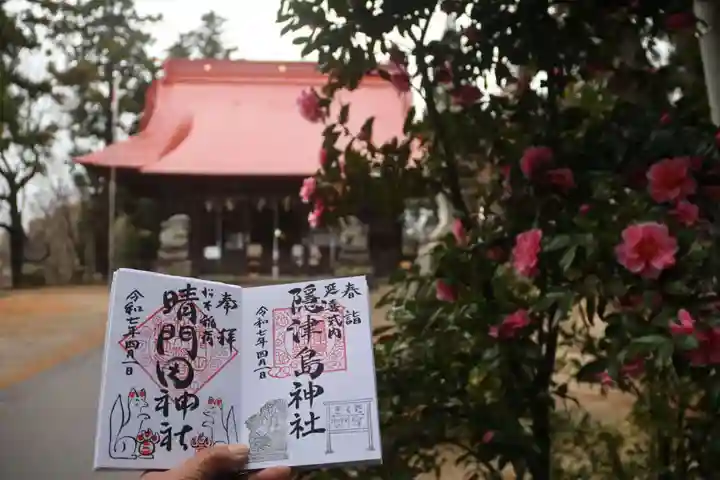 春詣
延喜式内
隠津島神社
令和七年四月一日
奉拝
お稲荷
晴門田神社
令和七年四月一日